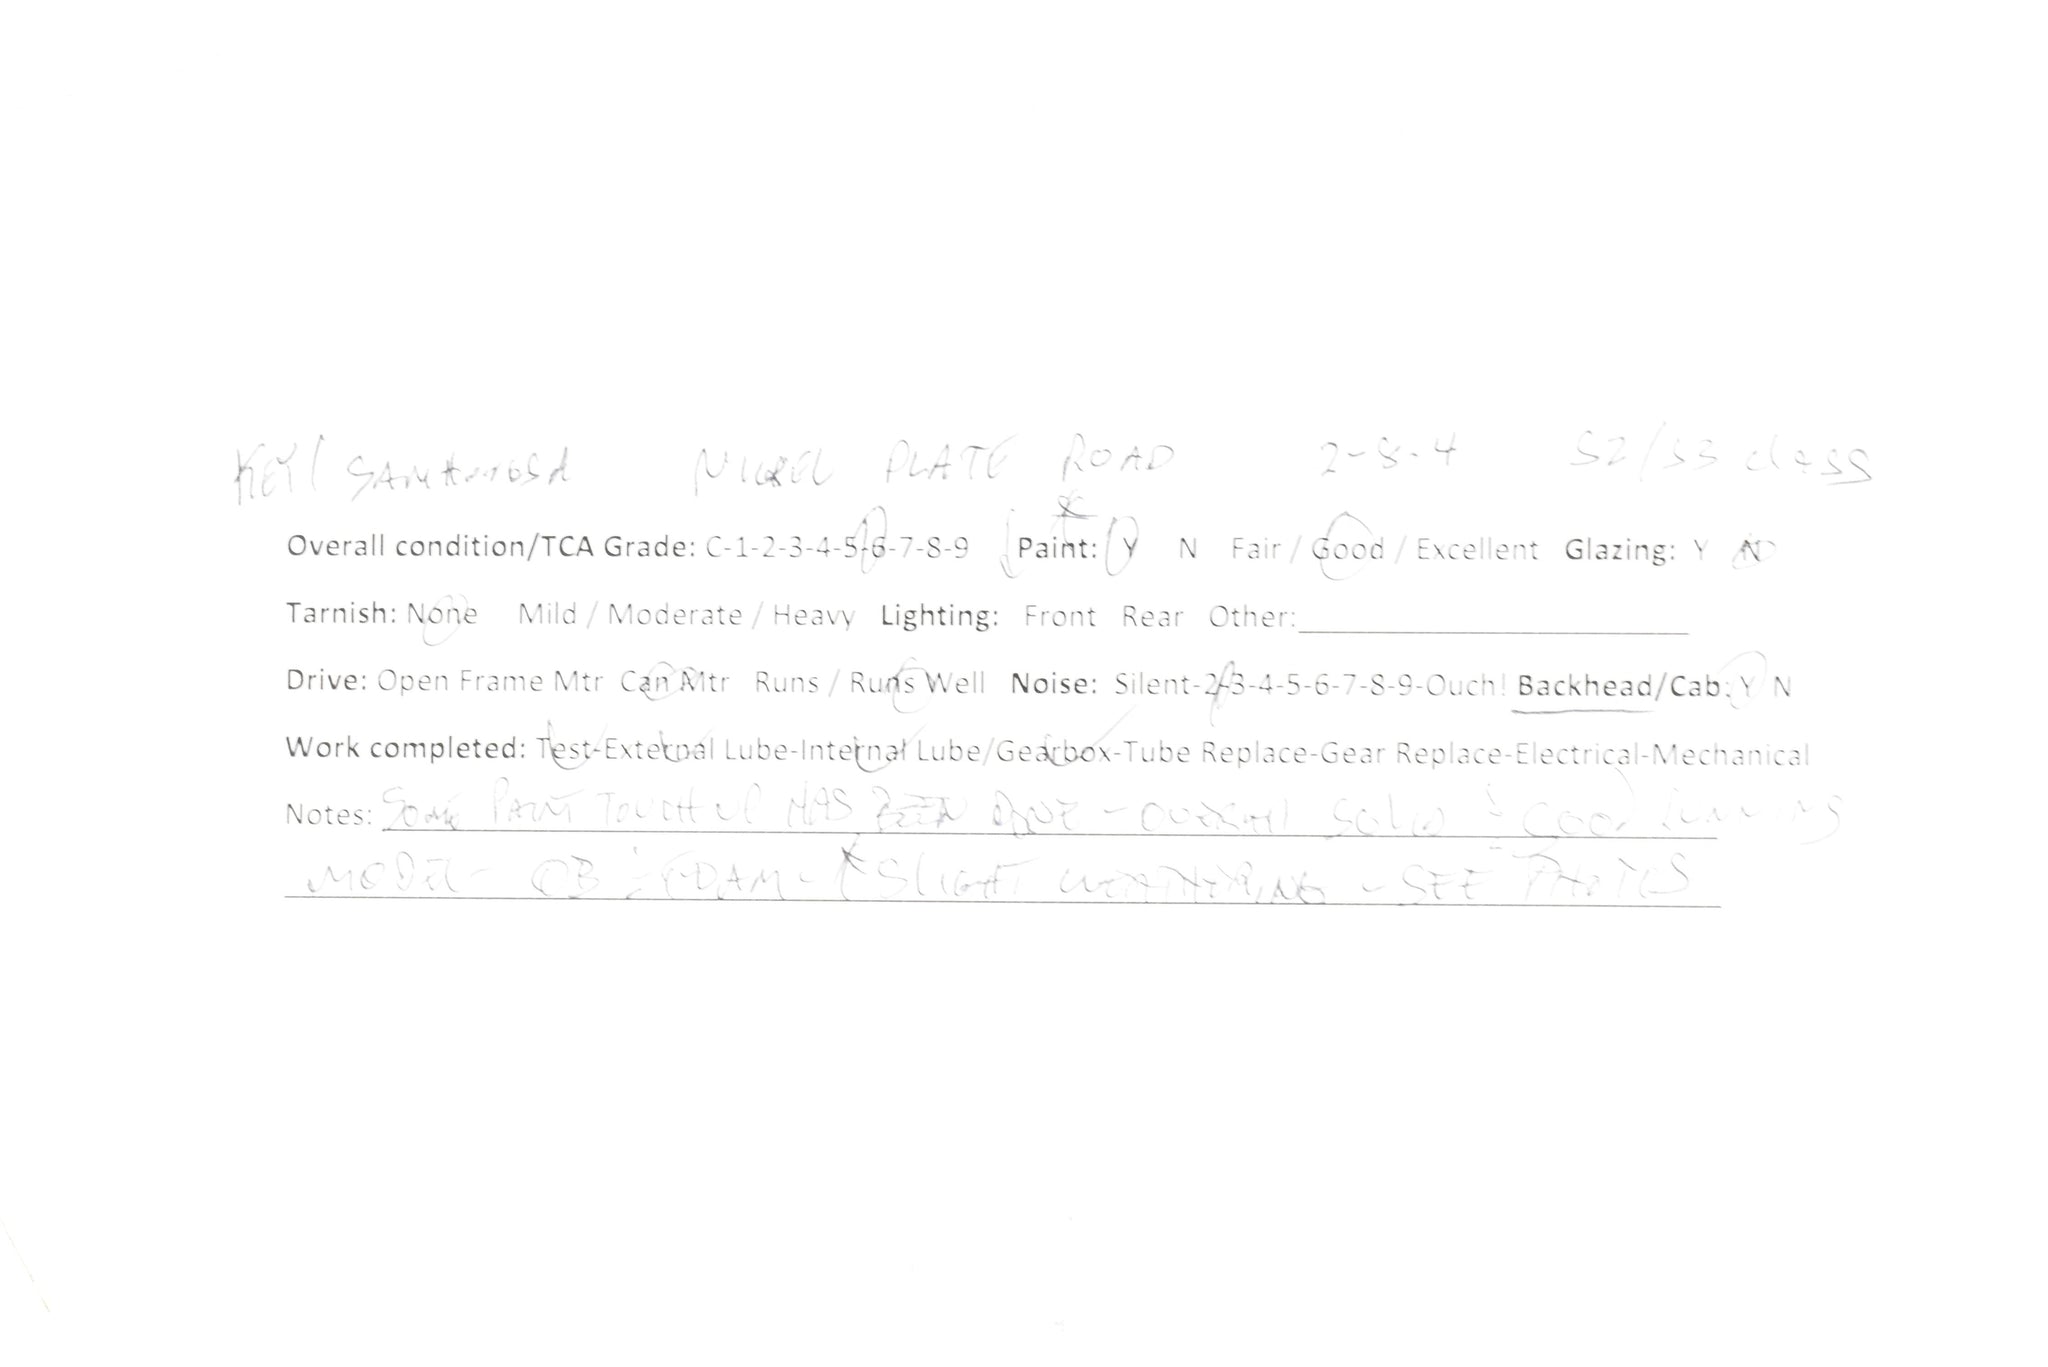 KEY/SAMHONGSA NICKEL PLATE ROAD 2-8-4 S2/S3 class
Overall condition/TCA Grade: C-1-2-3-4-5-6-7-8-9 Paint: Y N Fair / Good / Excellent Glazing: Y N
Tarnish: None Mild / Moderate / Heavy Lighting: Front Rear Other:
Drive: Open Frame Mtr Can Mtr Runs / Runs Well Noise: Silent-2-3-4-5-6-7-8-9-Ouch! Backhead/Cab: Y N
Work completed: Test-External Lube-Internal Lube/Gearbox-Tube Replace-Gear Replace-Electrical-Mechanical
Notes: SOME PAINT TOUCH UP HAS BEEN DONE - OVERALL SOLID & GOOD RUNNING
MODEL - OB & FOAM - * SLIGHT WEATHERING - SEE PHOTOS